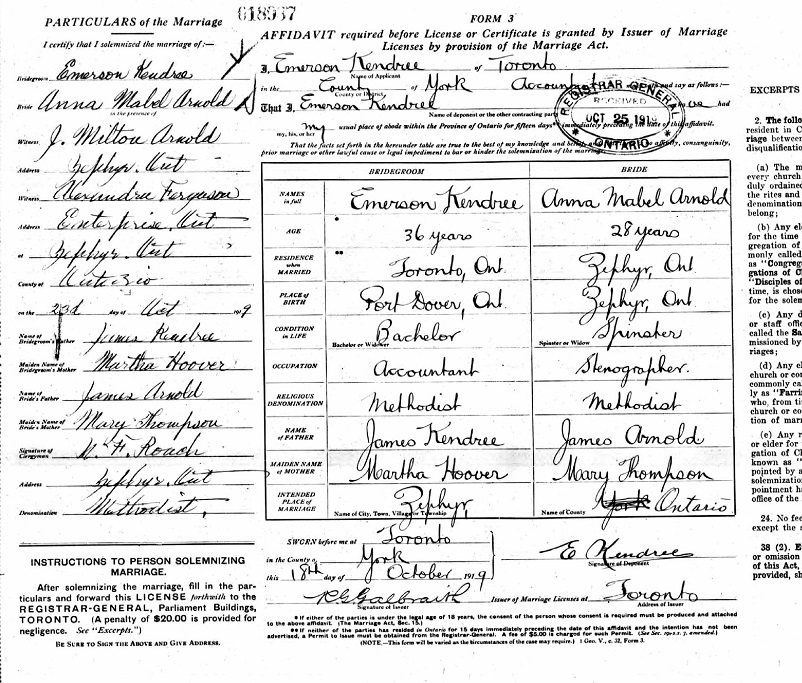 618937
PARTICULARS of the Marriage
I certify that I solemnized the marriage of:—
Bridegroom Emerson Kendree
Bride Anna Mabel Arnold
in the presence of
Witness J. Milton Arnold
Address Zephyr, Ont
Witness Alexandra Ferguson
Address Enterprise, Ont
at Zephyr Ont
County of Ontario
on the 23d day of Oct 1919
Name of Bridegroom's Father James Kendree
Maiden Name of Bridegroom's Mother Martha Hoover
Name of Bride's Father James Arnold
Maiden Name of Bride's Mother Mary Thompson
Signature of Clergyman F. Roach
Address Zephyr, Ont
Denomination Methodist
INSTRUCTIONS TO PERSON SOLEMNIZING
MARRIAGE.
After solemnizing the marriage, fill in the par-
ticulars and forward this LICENSE forthwith to the
REGISTRAR-GENERAL, Parliament Buildings,
TORONTO. (A penalty of $20.00 is provided for
negligence. See "Excerpts.")
BE SURE TO SIGN THE ABOVE AND GIVE ADDRESS.
FORM 3
AFFIDAVIT required before License or Certificate is granted by Issuer of Marriage
Licenses by provision of the Marriage Act.
I, Emerson Kendree of Toronto
Name of Applicant
in the County of York Accountant and say as follows:—
County or District
That I Emerson Kendree have had
Name of deponent or the other contracting party
my usual place of abode within the Province of Ontario for fifteen days** immediately preceding the date of this affidavit.
my, his, or her
That the facts set forth in the hereunder table are true to the best of my knowledge and belief affinity, consanguinity,
prior marriage or other lawful cause or legal impediment to bar or hinder the solemnization of the marriage.
REGISTRAR GENERAL
RECEIVED
OCT 25 1919
ONTARIO
BRIDEGROOM BRIDE
NAMES in full Emerson Kendree Anna Mabel Arnold
AGE * 36 years 28 years
RESIDENCE when MARRIED ** Toronto, Ont. Zephyr, Ont.
PLACE of BIRTH Port Dover, Ont Zephyr, Ont.
CONDITION IN LIFE Bachelor Spinster
Bachelor or Widower Spinster or Widow
OCCUPATION Accountant Stenographer.
RELIGIOUS DENOMINATION Methodist Methodist
NAME OF FATHER James Kendree James Arnold
MAIDEN NAME OF MOTHER Martha Hoover Mary Thompson
INTENDED PLACE OF MARRIAGE Zephyr, York Ontario
Name of City, Town, Village or Township Name of County
SWORN before me at Toronto
in the County of York
this 18th day of October 1919
E Kendree
Signature of Deponent
R G Galbraith Issuer of Marriage Licenses at Toronto
Signature of Issuer Address of Issuer
* If either of the parties is under the legal age of 18 years, the consent of the person whose consent is required must be produced and attached
to the above affidavit. (The Marriage Act, Sec. 15.)
** If neither of the parties has resided in Ontario for 15 days immediately preceding the date of this affidavit and the intention has not been
advertised, a Permit to issue must be obtained from the Registrar-General. A fee of $5.00 is charged for such Permit. (See Sec. 19 s.s. 7, amended.)
(NOTE.—This form will be varied as the circumstances of the case may require.) 1 Geo. V., c. 32, Form 3.
EXCERPTS
2. The follo
resident in C
riage betwee
disqualificatio
(a) The m
every church
duly ordained
the rites and
denomination
belong;
(b) Any el
for the time
gregation of C
monly called
as "Congreg
gations of Ch
"Disciples of
time, is chose
for the solem
(c) Any d
or staff office
called the Sa
missioned by
riages;
(d) Any el
church or co
commonly ca
ly as "Farri
who, from ti
church or co
tion of marr
(e) Any r
or elder for
gation of Ch
known as "
pointed by a
solemnization
pointment h
office of the
24. No fee
except the s
38 (2). E
or omission
of this Act,
provided, sh